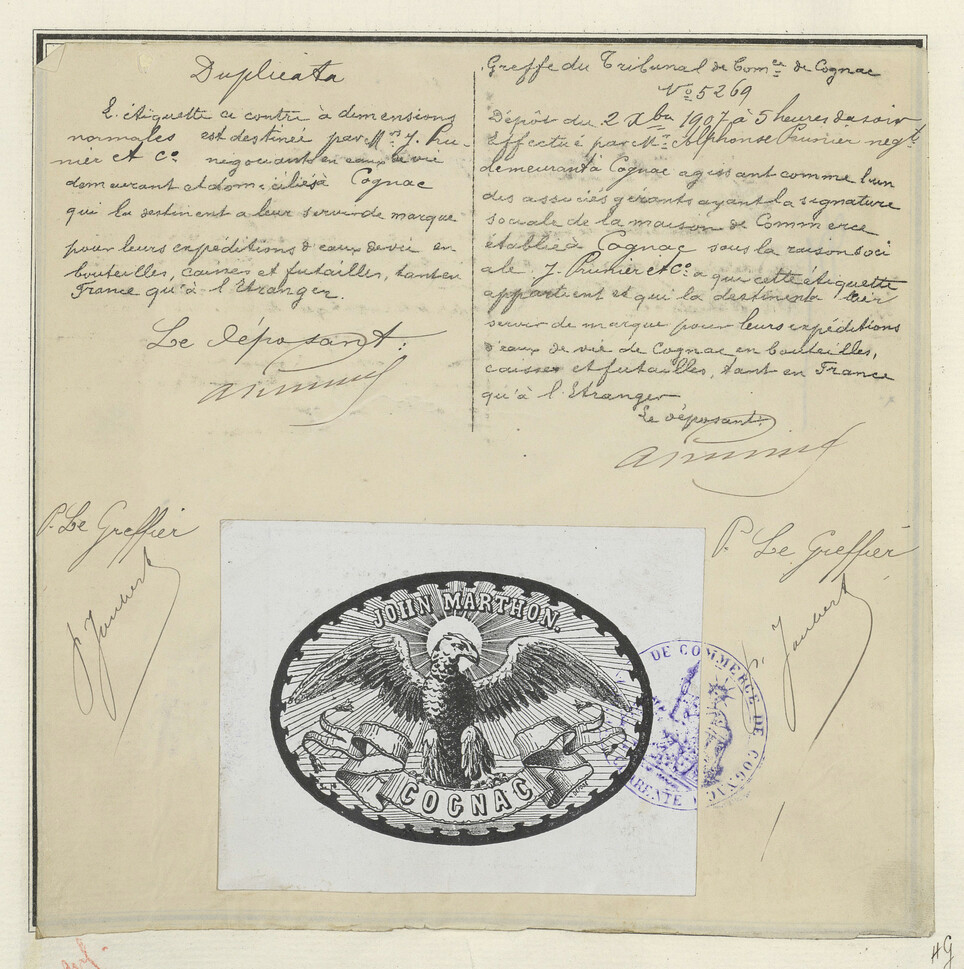 Duplicata
L'étiquette ci contre à demensions
normales est destinée par M.rs J. Pru-
nier et Co. negociants en eaux de vie
demeurant et domiciliés à Cognac
qui la destinent a leur servir de marque
pour leurs expéditions d'eaux de vie en
bouteilles, caisses et futailles, tant en
France qu'à l'Etranger.
Le déposant:
Greffe du Tribunal de Com.ce de Cognac
No 5269
Dépôt du 2 Xbre 1907 à 5 heures du soir
éffectué par M.r Alphonse Prunier negt
demeurant à Cognac agissant comme l'un
des associés gérants ayant la signature
sociale de la maison de Commerce
établie à Cognac sous la raison soci
ale J. Prunier et Co. a qui cette étiquette
appartient et qui la destinent à leur
servir de marque pour leurs expéditions
d'eaux de vie de Cognac en bouteilles,
caisses et futailles, tant en France
qu'à l'Etranger
Le déposant:
P. Le Greffier
Joubert
P. Le Greffier
Joubert
JOHN MARTHON.
COGNAC
DE COMMERCE DE COGNAC
CHARENTE
HG